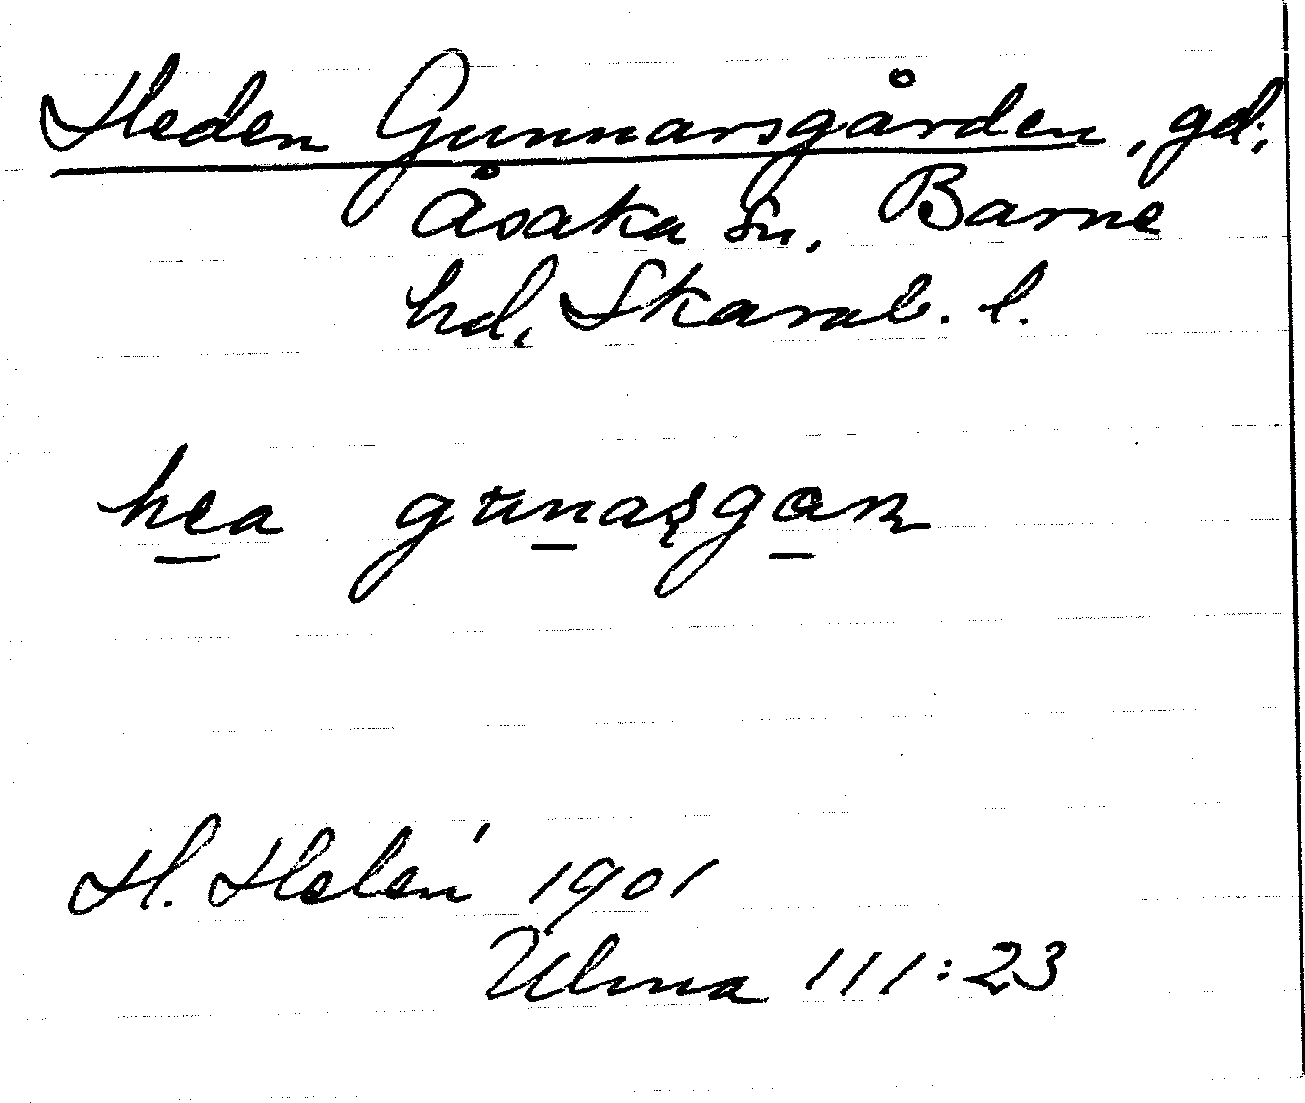 Heden Gunnarsgården, gd.
Åsaka sn, Barne
hd, Skarab. l.
hea
H. Helén 1901
Ulma 111:23